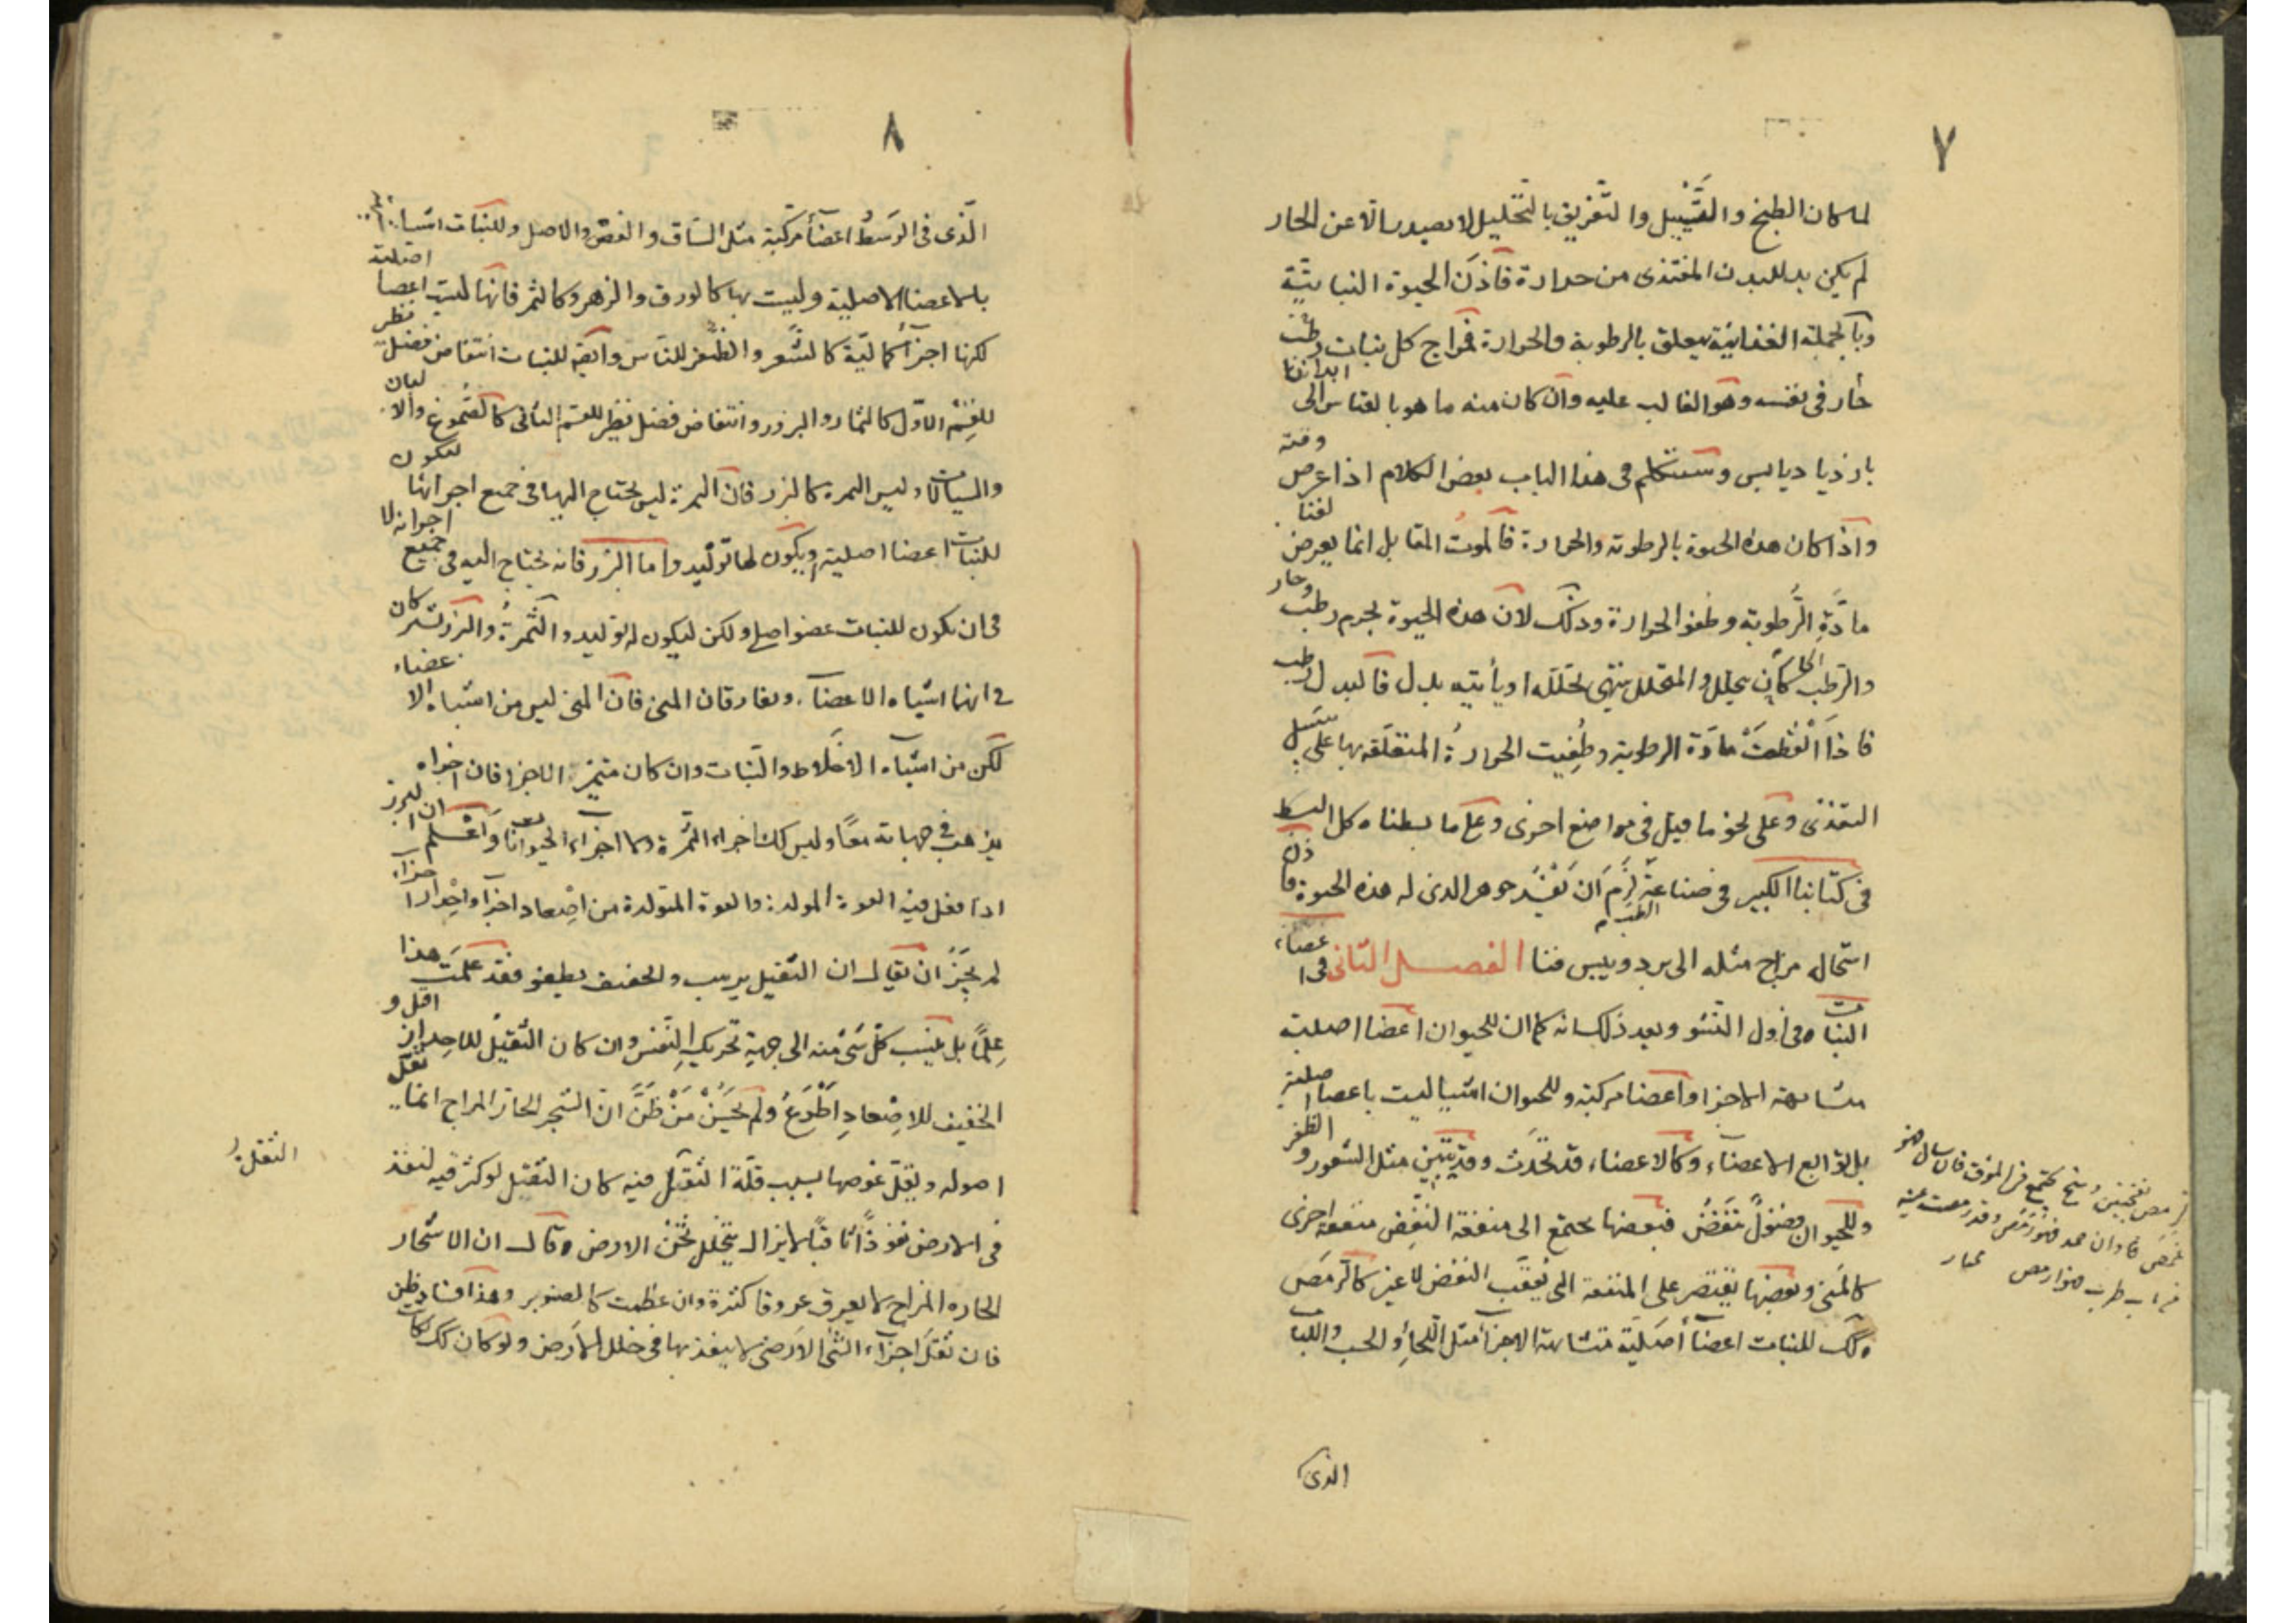 ٧
لما كان الطبخ والتسييل والتفريق بالتحليل لا يصدر الا عن الحار
لم يكن بد للبدن المغتذى من حرارة فاذن الحيوة النباتية
وبالجملة الغذائية يتعلق بالرطوبة والحرارة فمزاج كل نبات رطب
حار فى نفسه وهو الغالب عليه وان كان منه ما هو بالقياس الى ابداننا
باردا يابس وسنتكلم فى هذا الباب بعض الكلام اذا عرض وقته
واذا كان هذه الحيوة بالرطوبة والحرارة فالموت المقابل انما يعرض لفنا
مادة الرطوبة وطفو الحرارة وذلك لان هذه الحيوة بجرم رطب وحار
والرطب الحار كاين يتحلل والمتحلل ينتهى تحلله او يأتيه بدل فالبدل رطب
فاذا انقطعت مادة الرطوبة وطفيت الحرارة المتعلقة بها على سبيل
التغذى وعلى نحو ما قيل فى مواضع اخرى وعلى ما بسطناه كل البسط
فى كتابنا الكبير فى صناعة الطب لزم ان يفسد جوهر الذى له هذه الحيوة فاذن
استحال مزاج مثله الى برد ويبس فنا الفصل الثانى فى اعضاء
النبات فى اول النشو وبعد ذلك انه كما ان للحيوان اعضا اصلية
متشابهة الاجزا واعضا مركبة وللحيوان اشيا ليست باعضا اصلية
بل توابع الاعضاء وكالاعضاء قد تحدث وقد تبين مثل الشعور والظفر
وللحيوان فضول تنفض فبعضها يجتمع الى منفعة النفض منفعة اخرى
كالمنى وبعضها يقتصر على المنفعة التى يعقب النفض لا غير كالرمص
وكذلك للنبات اعضا اصلية متشابهة الاجزا مثل اللحاء والحب واللباب
الذى
رمص بفتحتين وسخ يجتمع فى الموق فان سال فهو
غمص وان جمد فهو رمص وقد رمصت عينه
٨
الذى فى الوسط اعضا مركبة مثل الساق والغصن والاصل وللنبات اشيا
بالاعضا الاصلية وليست بها كالورق والزهر وكالثمر فانها ليست اعضا اصلية
لكنها اجزا كمالية كالشعر والظفر للناس وايضه للنبات انتفاض فضل نظير
للقسم الاول كالثمار والبزور وانتفاض فضل نظير للقسم الثانى كالصموغ والالبان
والسيالات وليس الثمرة كالبزر فان الثمرة ليس يحتاج اليها فى جميع اجزائها لتكون
للنبات اعضا اصلية ويكون لها توليد واما البزر فانه يحتاج اليه فى جميع اجزائه لا
فى ان يكون للنبات عضو اصلى ولكن ليكون له توليد والثمرة والبزر تشتركان
فى انهما اشباه الاعضاء ويفارقان المنى فان المنى ليس من اشباه الاعضاء
لكن من اشباه الاخلاط والنبات وان كان متميز الاجزا فان اجزاه
يذهب فى جهاته معا وليس كذلك اجزاء الثمرة ولا اجزاء الحيوانات واعلم ان البزر
اذا فعل فيه القوة المولدة والقوة المتولدة من اصعاد اجزا واحدار اجزاء
لم يجز ان يقال ان الثقيل يرسب والخفيف يطفو فقد علمت هذا
علما بل ينسب كل شئ منه الى جهة تحريك النفس وان كان الثقيل للاحدار اقل و
الخفيف للاصعاد اطوع ولم يحسن من ظن ان الشجر الحار المزاج انما يقل
اصوله ويقل غوصها بسبب قلة الثقل فيه كان الثقيل لو كثر فيه لنفذ
فى الارض نفوذا ثاقبا لا يزال يتخلل ثخن الارض وقال ان الاشجار
الحاره المزاج لا يعرق عروقا كثيرة وان عظمت كالصنوبر وهذا فساد ظن
فان ثقل اجزاء الشئ الارضى لا ينفذ بها فى خلل الارض ولو كان كذلك لكانت
الثقل